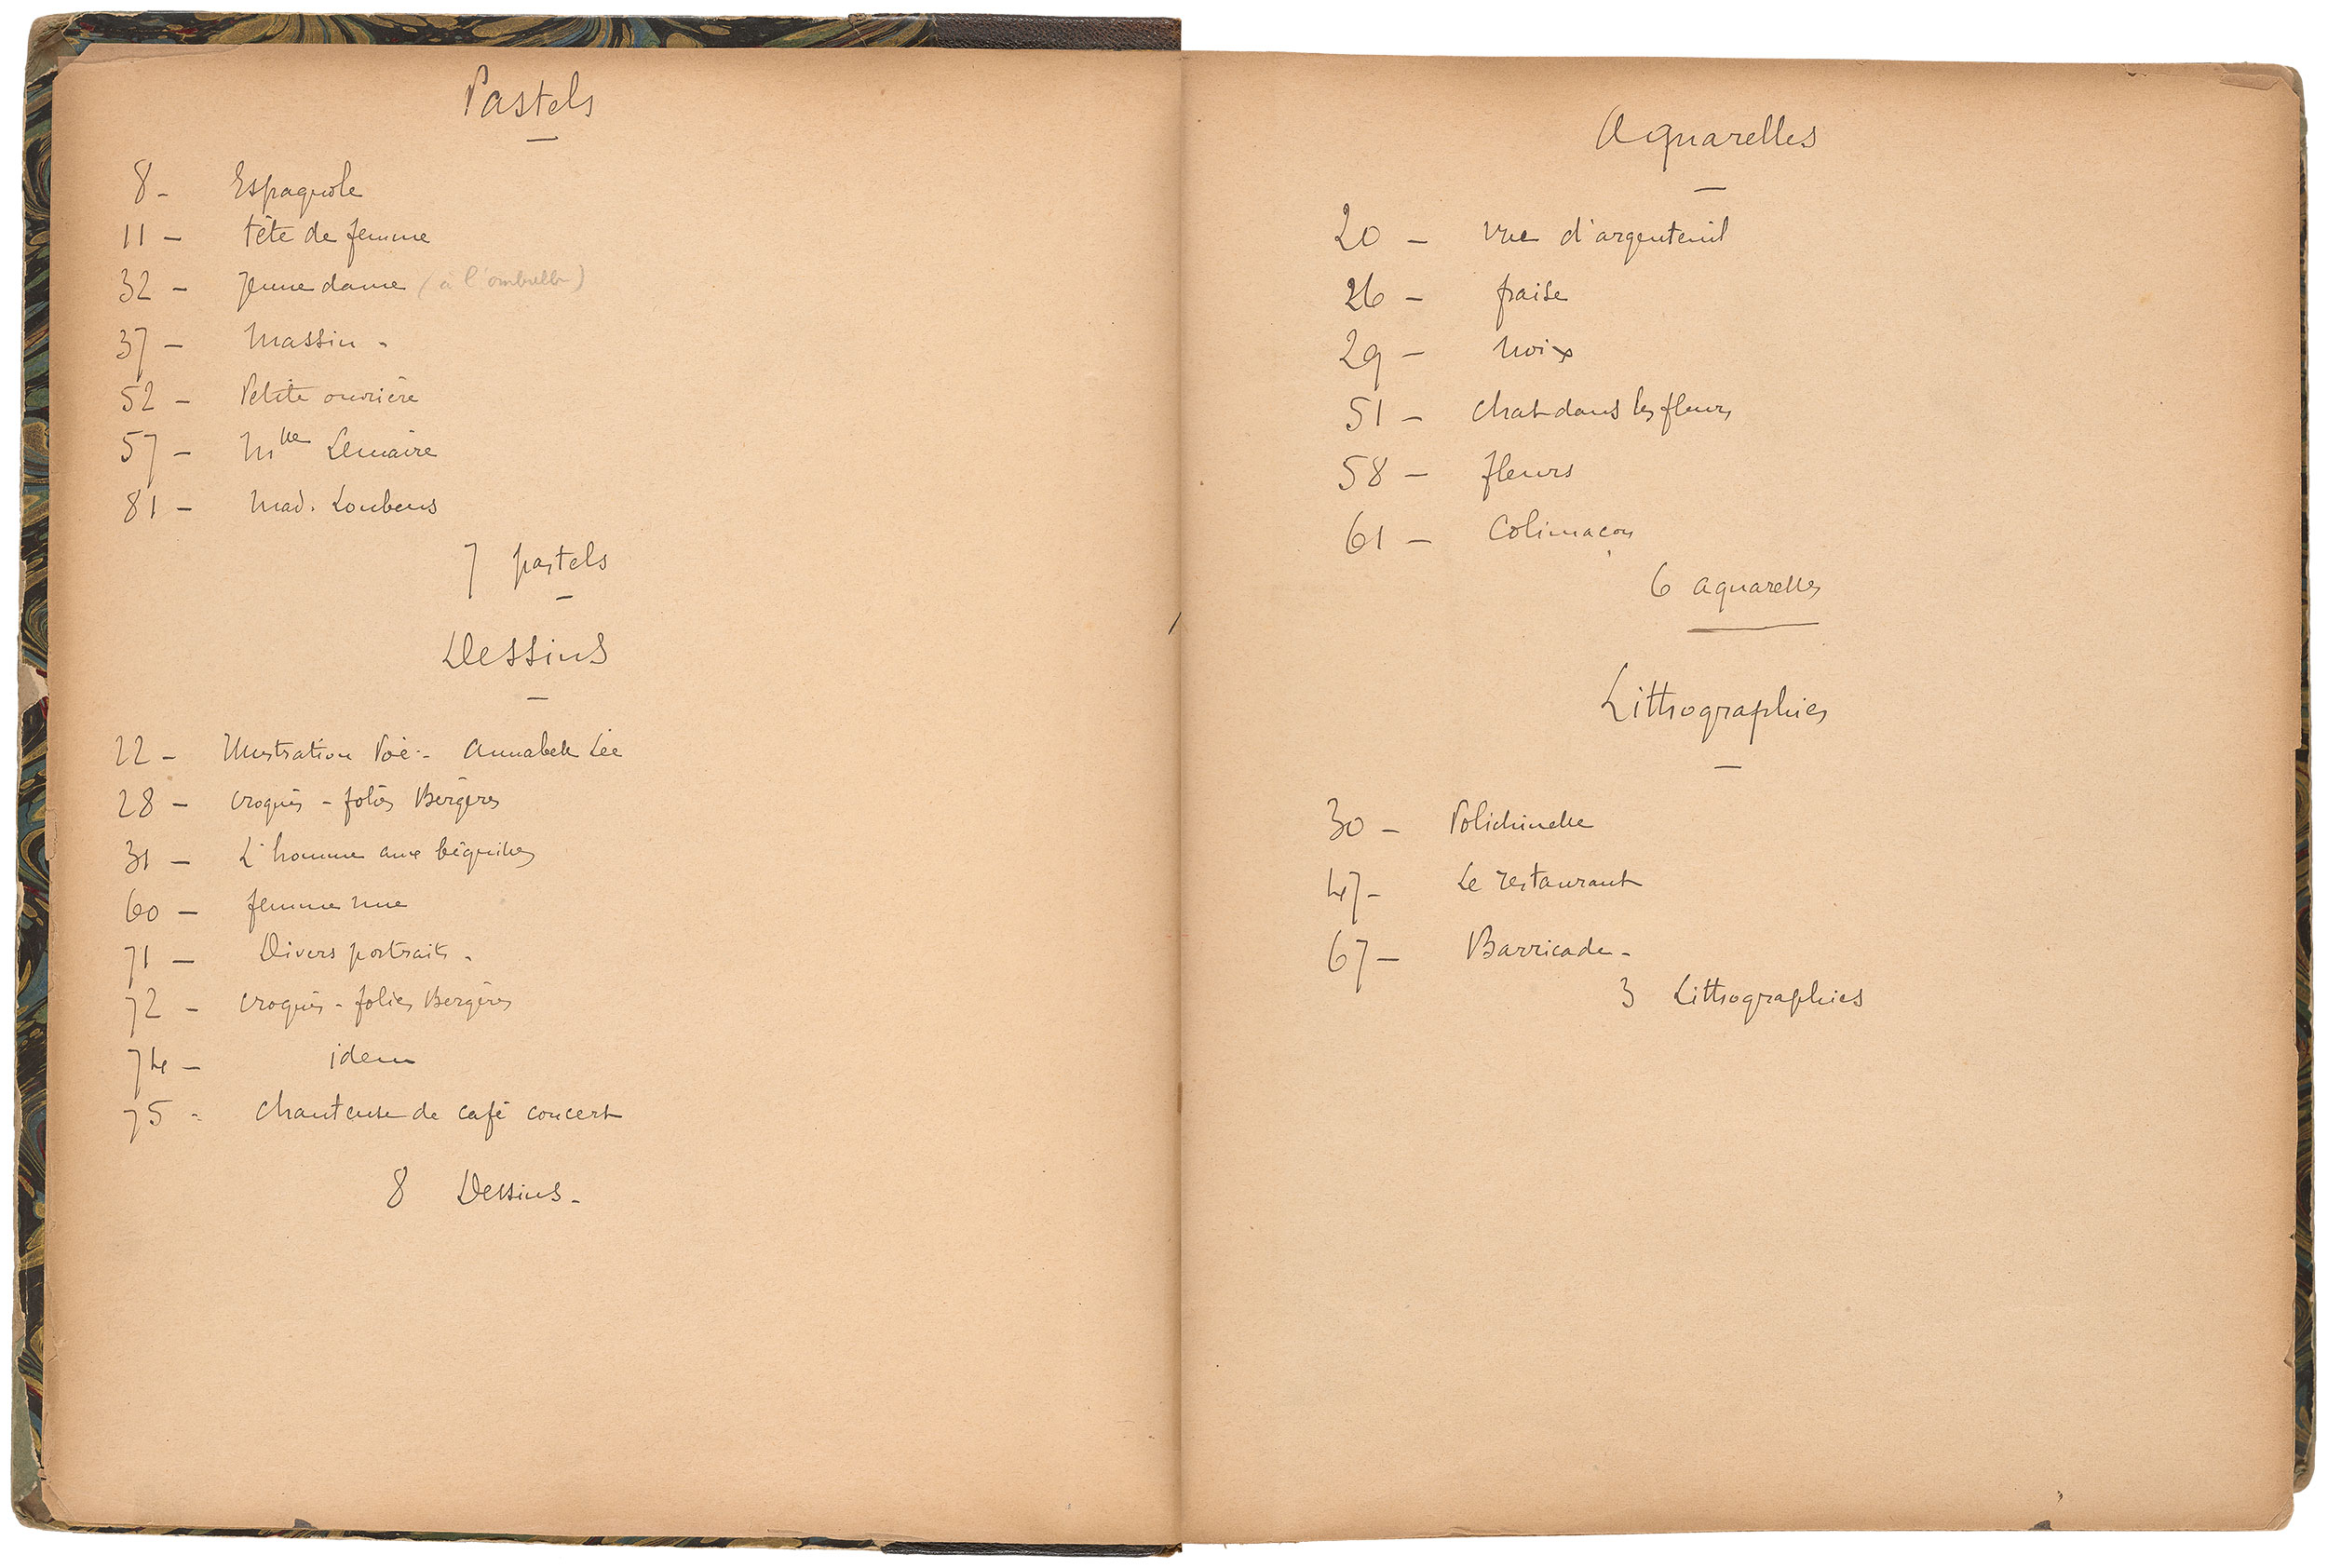 Pastels
8 - Espagnole
11 - tête de femme
32 - Jeune dame (à l'ombrelle)
37 - Massin -
52 - Petite ouvrière
57 - Mlle Lemaire
81 - Mad. Loubens
7 pastels
Dessins
22 - Illustration Poë - Annabelle Lée
28 - croquis - folies Bergères
31 - L'homme aux béquilles
60 - femme nue
71 - Divers portraits -
72 - croquis - folies Bergères
74 - idem
75 - Chanteuse de café concert
8 Dessins -
Aquarelles
20 - vue d'argenteuil
26 - fraise
29 - Noix
51 - Chat dans les fleurs
58 - fleurs
61 - Colimaçon
6 aquarelles
Litthographies
30 - Polichinelle
47 - Le restaurant
67 - Barricade -
3 Litthographies